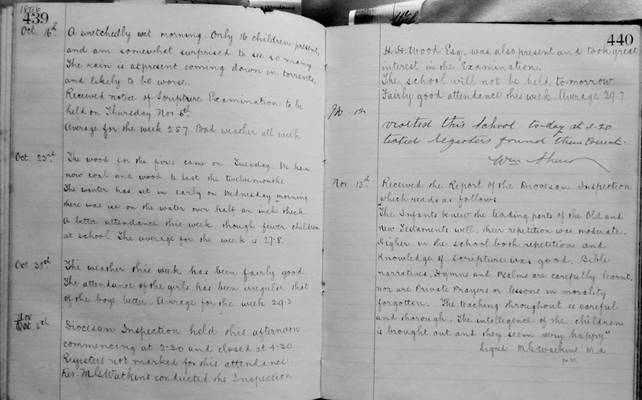 1886
439
Oct. 16th A wretchedly wet morning. Only 16 children present,
and am somewhat surprised to see so many.
The rain is at present coming down in torrents,
and likely to be worse.
Received notice of Scripture Examination to be
held on Thursday Nov 6th.
Average for the week 25.7. Bad weather all week
Oct. 23rd The wood for the fires came on Tuesday. We have
now coal and wood to last the twelvemonths
The winter has set in early on Wednesday morning
there was ice on the water over half an inch thick.
A better attendance this week though fewer children
at school. The average for the week is 27.8.
Oct 30th The weather this week has been fairly good
The attendance of the girls has been irregular that
of the boys better. Average for the week 29.2
Nov
Oct 6th Diocesan Inspection held this afternoon
commencing at 2:30 and closed at 4.30
Registers not marked for this attendance.
Rev. M G Watkins conducted the Inspection
440
H. H. Wood Esq. was also present and took great
interest in the Examination.
The school will not be held tomorrow.
Fairly good attendance this week. Average 29.7.
visited this School today at 3.20
tested registers found them Correct.
Wm
Nov. 13th Received the Report of the Diocesan Inspection
which reads as follows.
"The Infants knew the leading parts of the Old and
New Testaments well, their repetition was moderate.
Higher in the school both repetition and
knowledge of Scripture was good. Bible
narratives, Hymns and Psalms are carefully learnt,
nor are Private Prayers or lessons in morality
forgotten. The teaching throughout is careful
and thorough. The intelligence of the children
is brought out and they seem very happy."
Signed M G Watkins M.A.